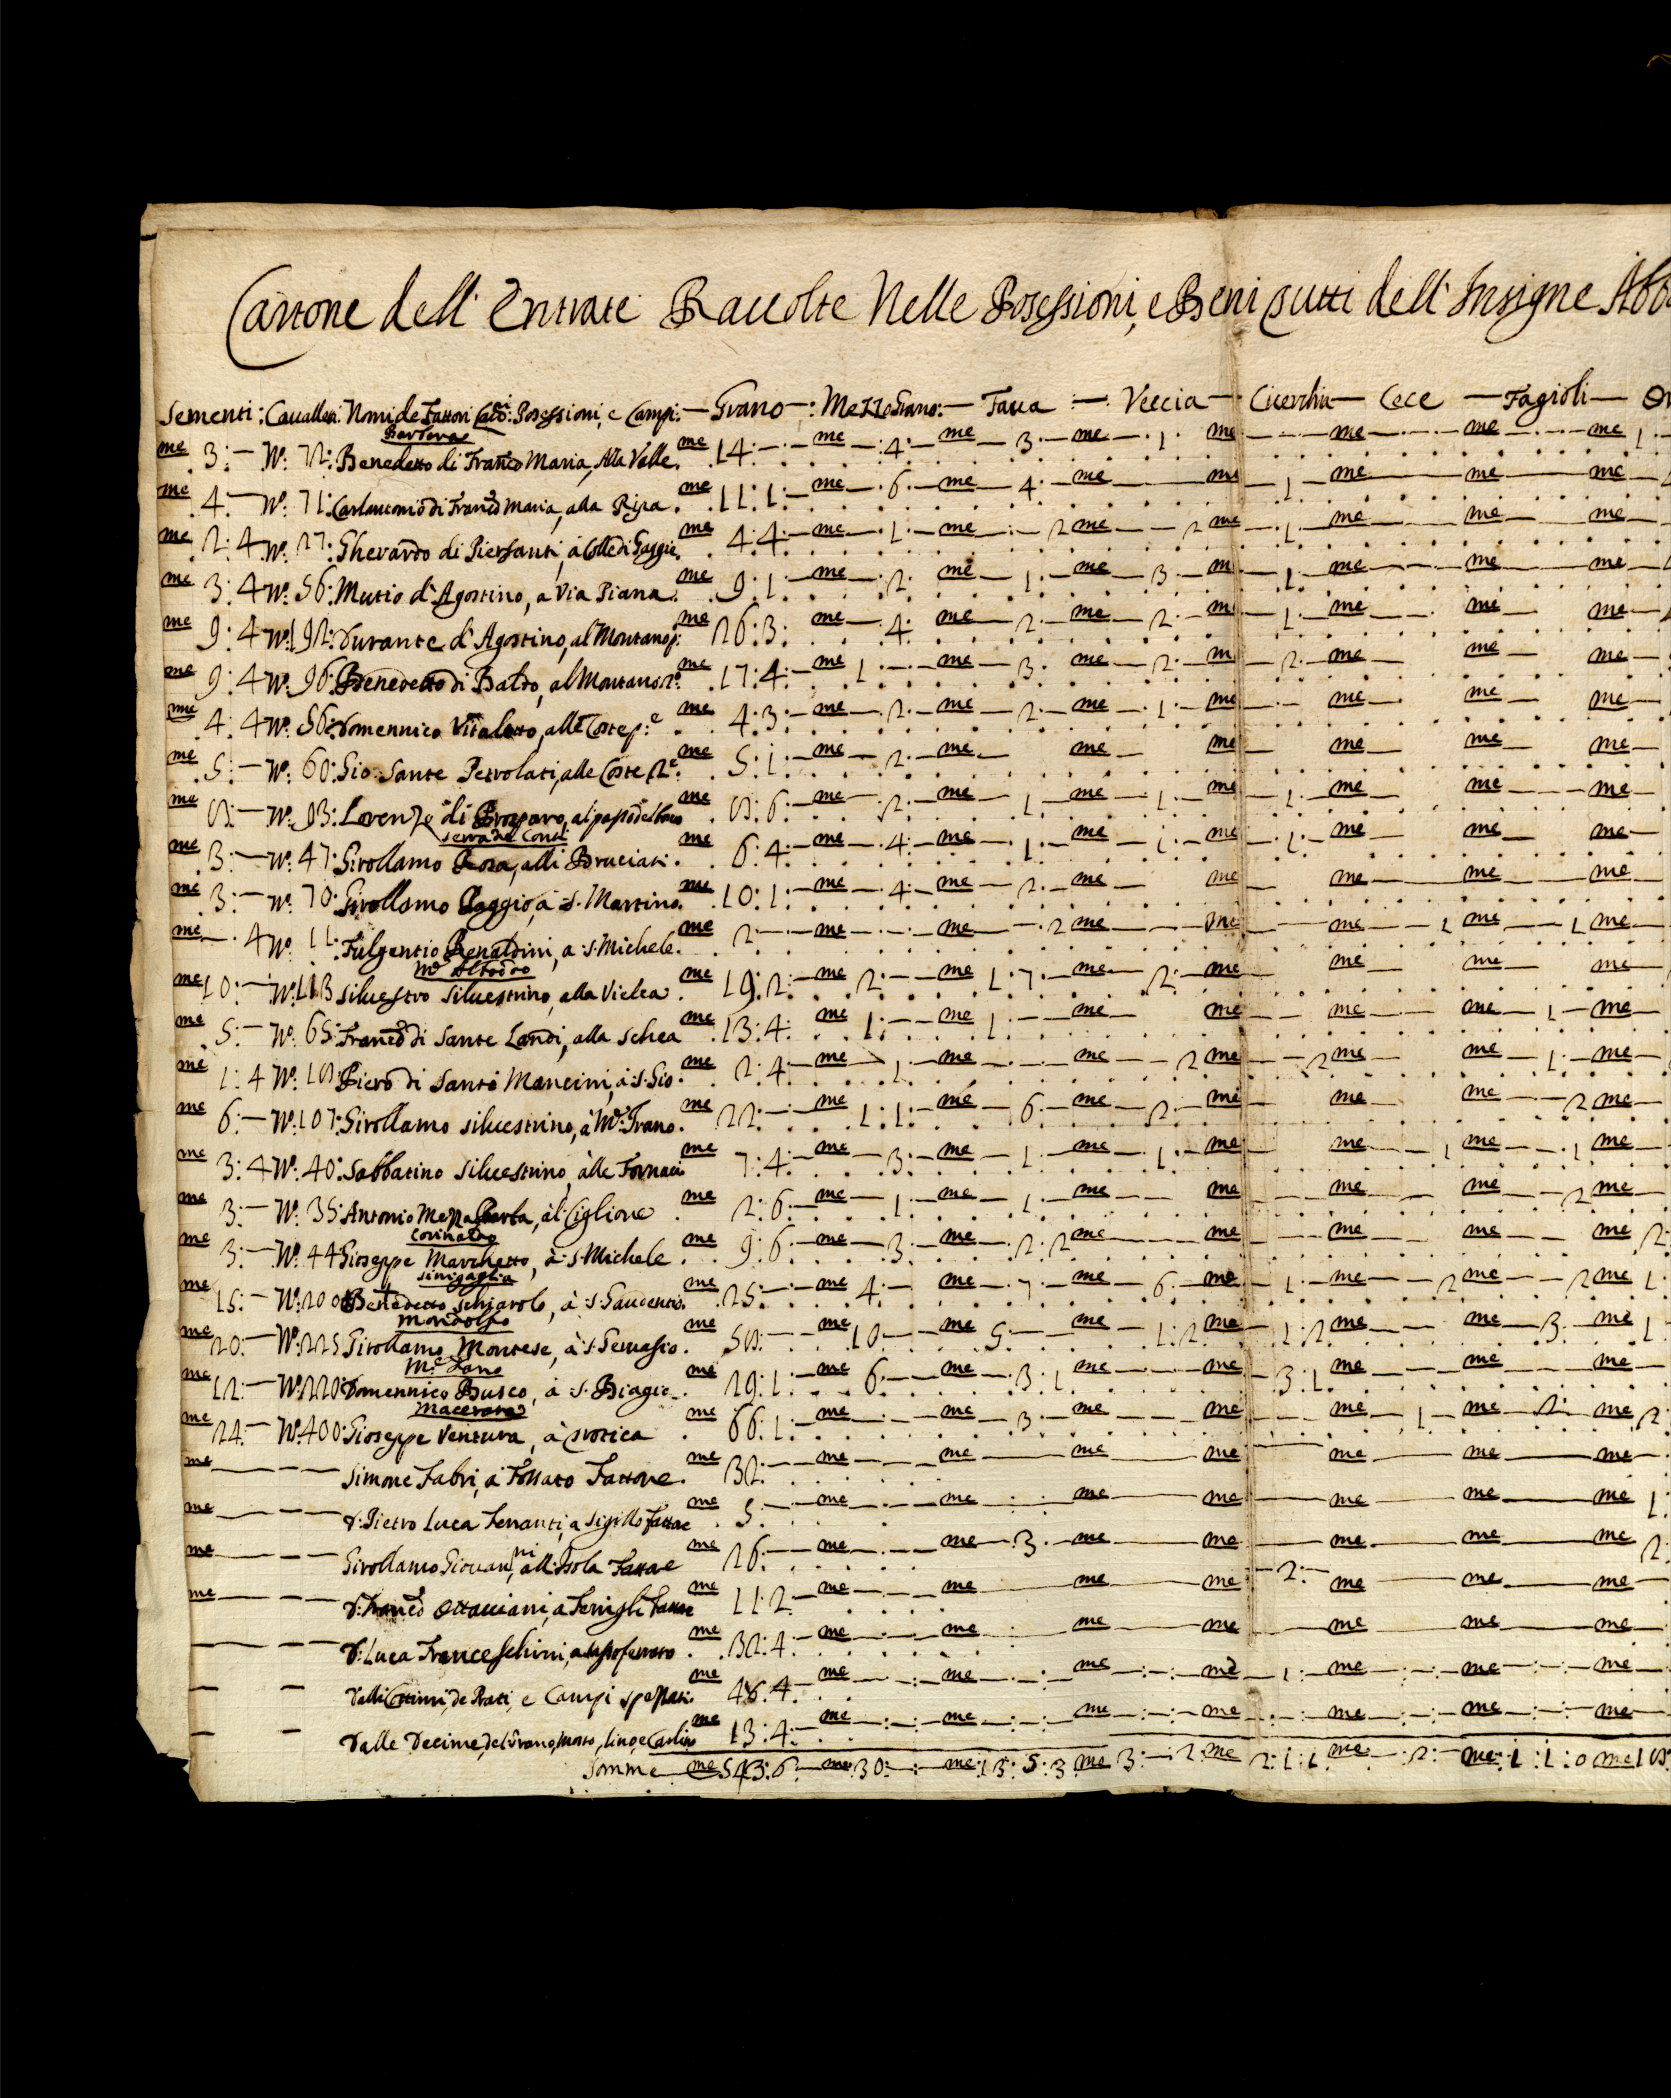 Cartone dell' Entrate Raccolte Nelle Posessioni, e Beni tutti dell' Insigne Abb
Sementi: Cavalletti: Nomi de Fattori Posessioni, e Campi: — Grano —: MezzoGrano: — Faua — Veccia — Cicerchia — Cece — Fagioli —
Barbara
me 3: — No: 72: Benedetto di Franco Maria, Alla Valle. me 14: — me — 4: — me — 3: — me — 1: me — me — me — me 1: —
me 4: — No: 71: Carlantonio di Franco Maria, alla Ripa. me 11: 1: — me — 6: — me — 4: — me — me — 1 — me — me — me —
me 2: 4 No: 27: Gherardo di Piersanti, à Colle di Poggio. me 4: 4: — me — 1: — me — 2 me — 2 me — 1: me — me — me —
me 3: 4 No: 56: Mutio d'Agostino, a Via Piana. me 9: 1: — me — 2: me — 1: — me — 3: — me — 1: me — me — me —
me 9: 4 No: 192: Durante d'Agostino, al Montano p: me 26: 3: me 4: me — 2: — me — 2: — me — 1: — me — me — me —
me 9: 4 No: 96: Benedetto di Baldo, al Montano 2o: me 17: 4: — me 1: — me — 3: me — 2: — me 2: — me — me — me —
me 4: 4 No: 56: Domennico Vitaletto, alle Coste p:e me 4: 3: — me — 2: — me — 2: — me — 1: — me — me — me — me —
me 5: — No: 60: Gio: Sante Petrolati, alle Coste 2e: me 5: 1: — me — 2: — me — me — me — me — me — me —
me 8: — No: 93: Lorenzo di Prosparo, al me 8: 6: — me — 2: — me — 1: — me — 1: — me — 1: — me — me — me —
Serra de Conti
me 3: — No: 47: Girollamo Rosa, alli Bruciati. me 6: 4: — me — 4: — me — 1: — me — 1: — me — 1: — me — me — me —
me 3: — No: 70: Girollamo Poggio, à S. Martino. me 10: 1: — me — 4: — me — 2: — me — me — me — me — me —
me — 4 No: 11: Fulgentio Renaldini, a S: Michele. me 2 — me — me — 2 me — me — me — 1 me — 1 me —
Me Alfodoo
me 10: — No: 113 Siluestro Siluestrino, alla Viclea. me 19: 2: — me — 2: — me 1: 7: — me — 2: — me me — me — me —
me 5: — No: 65: Franco di Sante Landi, alla Schea me 13: 4: me 1: — me 1: — me — me — me — me — 1 — me —
me 1: 4 No: 18: Piero di Santo Mancini, à S: Gio: me 2: 4: — me — 1: — me — me — 2 me — 2 me — me — 1: — me —
me 6: — No: 107: Girollamo Siluestrino, à Me: Frano. me 22: — me — 1: 1: — me — 6: — me — 2: — me — me — me — 2 me —
me 3: 4 No: 40: Sabbatino Siluestrino, àlle Fornaci me 7: 4: — me — 3: — me — 1: — me — 1: — me — me — 1 me — 1 me —
me 3: — No: 35: Antonio Mezzabarba, àl Ciglione me 2: 6: — me — 1: — me — 1: — me — me — me — me — 2 me —
Corinaldo
me 3: — No: 44 Gioseppe Marchetto, à S: Michele. me 9: 6: — me — 3: — me — 2: 2 me — me — me — me — me 2:
Sinigaglia
me 15: — No: 200 Benedetto Schiarolo, à S: Gaudentio. me 25: — me 4: — me — 7: — me — 6: — me — 1: — me — 2 me — 2 me 1:
Mondolfo
me 20: — No: 225 Girollamo Montese, à S: Geruasio. me 58: — me 10: — me 5: — me — 1: 2 me — 1: 2 me — me — 3: — me 1:
Me Fano
me 12: — No: 220 Domennico Busco, à S: Biagio. me 29: 1: — me 6: — me — 3: 1 me — me — 3: 1 me — me — me —
Macerata
me 24: — No: 400: Gioseppe Ventura, à me 66: 1: — me — me — 3: — me — me — me — 1 — me — 2: me 2:
me — — Simone Fabri, a Fossato Fattore. me 32: — me — me — me — me — me — me — me —
me — — D: Pietro Luca Ferranti, a Sigillo Fattore me 5: — me — me — me — me — me — me — me 1:
me — — Girollamo Giouanni, all'Isola Fattore me 26: — me — me — 3: — me — me — me — me — me 2:
me — — D: Franco Ottauiani, a Ferrigli Fattore me 11: 2: — me — me — me — me — 2: — me — me — me —
— — D: Luca Franceschini, a Sassoferrato me 32: 4: — me — me — me — me — me — me — me —
— — Dalli Cottimi, de Prati, e Campi spezzati. me 46: 4: — me — me — me — me — 1: — me — me — me —
— — Dalle Decime, del Grano, Mosto, lino, e me 13: 4: — me — me — me — me — me — me — me —
Somme — me 543: 6: — me 30: — me 13: 5: 3 me 3: — 2 me 2: 1: 1 me — 2: — me 1: 1: 0 me 18: